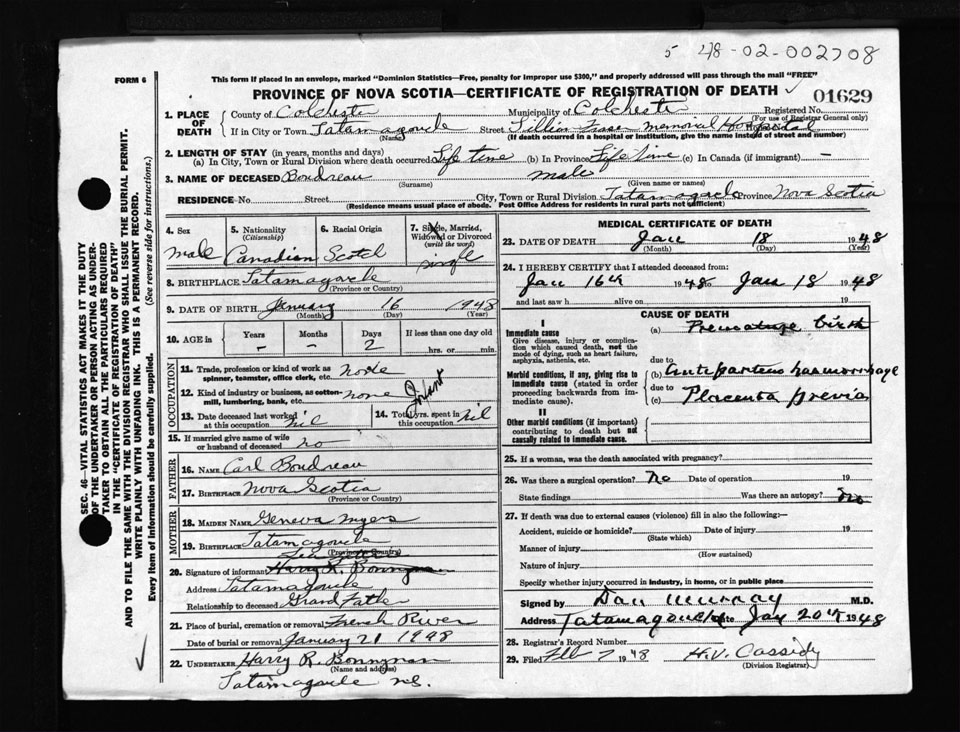 5 48-02-002708
FORM 6
This form if placed in an envelope, marked "Dominion Statistics—Free, penalty for improper use $300," and properly addressed will pass through the mail "FREE"
PROVINCE OF NOVA SCOTIA—CERTIFICATE OF REGISTRATION OF DEATH ✓ 01629
1. PLACE OF DEATH { County of Colchester Municipality of Colchester Registered No.
(For use of Registrar General only)
If in City or Town Tatamagouche Street Lillian Fraser Memorial Hospital
(Name) (If death occurred in a hospital or institution, give the name instead of street and number)
2. LENGTH OF STAY (in years, months and days)
(a) In City, Town or Rural Division where death occurred Life time (b) In Province Life time (c) In Canada (if immigrant) —
3. NAME OF DECEASED Boudreau male
(Surname) (Given name or names)
RESIDENCE No. Street City, Town or Rural Division Tatamagouche Province Nova Scotia
(Residence means usual place of abode. Post Office Address for residents in rural parts not sufficient)
4. Sex male
5. Nationality (Citizenship) Canadian
6. Racial Origin Scotch
7. Single, Married, Widowed or Divorced (write the word) single
8. BIRTHPLACE Tatamagouche
(Province or Country)
9. DATE OF BIRTH January 16 1948
(Month) (Day) (Year)
10. AGE in { Years Months Days If less than one day old
- - 2 hrs. or min.
OCCUPATION
11. Trade, profession or kind of work as spinner, teamster, office clerk, etc. none
12. Kind of industry or business, as cotton-mill, lumbering, bank, etc. none
Infant
13. Date deceased last worked at this occupation nil
14. Total yrs. spent in this occupation nil
15. If married give name of wife or husband of deceased no
FATHER
16. NAME Carl Boudreau
17. BIRTHPLACE Nova Scotia
(Province or Country)
MOTHER
18. MAIDEN NAME Geneva Myers
19. BIRTHPLACE Tatamagouche
(Province or Country)
20. Signature of informant Harry R. Bonnyman
Address Tatamagouche
Relationship to deceased Grand Father
21. Place of burial, cremation or removal French River
Date of burial or removal January 21 1948
22. UNDERTAKER Harry R. Bonnyman
(Name and address)
Tatamagouche N.S.
MEDICAL CERTIFICATE OF DEATH
23. DATE OF DEATH Jan 18 1948
(Month) (Day) (Year)
24. I HEREBY CERTIFY that I attended deceased from:
Jan 16th 1948 to Jan 18 1948
and last saw h alive on 19
CAUSE OF DEATH
I
Immediate cause
Give disease, injury or complication which caused death, not the mode of dying, such as heart failure, asphyxia, asthenia, etc.
(a) Premature birth
due to
Morbid conditions, if any, giving rise to immediate cause (stated in order proceeding backwards from immediate cause).
(b) Antepartum haemorrhage
due to
(c) Placenta previa
II
Other morbid conditions (if important) contributing to death but not causally related to immediate cause.
25. If a woman, was the death associated with pregnancy?
26. Was there a surgical operation? No Date of operation 19
State findings Was there an autopsy? no
27. If death was due to external causes (violence) fill in also the following:—
Accident, suicide or homicide? Date of injury 19
(State which)
Manner of injury
(How sustained)
Nature of injury
Specify whether injury occurred in industry, in home, or in public place
Signed by Dan Murray M.D.
Address Tatamagouche Date Jan 20th 1948
28. Registrar's Record Number
29. Filed Feb 7 1948 H.V. Cassidy
(Division Registrar)
SEC. 46—VITAL STATISTICS ACT MAKES IT THE DUTY
OF THE UNDERTAKER OR PERSON ACTING AS UNDER-
TAKER TO OBTAIN ALL THE PARTICULARS REQUIRED
IN THE "CERTIFICATE OF REGISTRATION OF DEATH"
AND TO FILE THE SAME WITH THE DIVISION REGISTRAR WHO SHALL ISSUE THE BURIAL PERMIT.
WRITE PLAINLY WITH UNFADING INK. THIS IS A PERMANENT RECORD.
Every item of information should be carefully supplied. (See reverse side for instructions.)